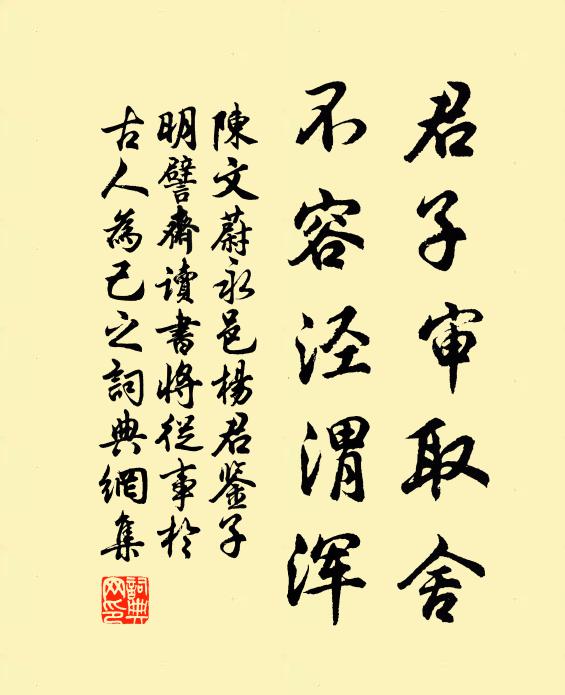 君子审取舍
不容泾渭浑
陳文蔚永邑楊君鉴子
明譬齋讀書将從事於
古人為己之詞典網集
詞典
网印